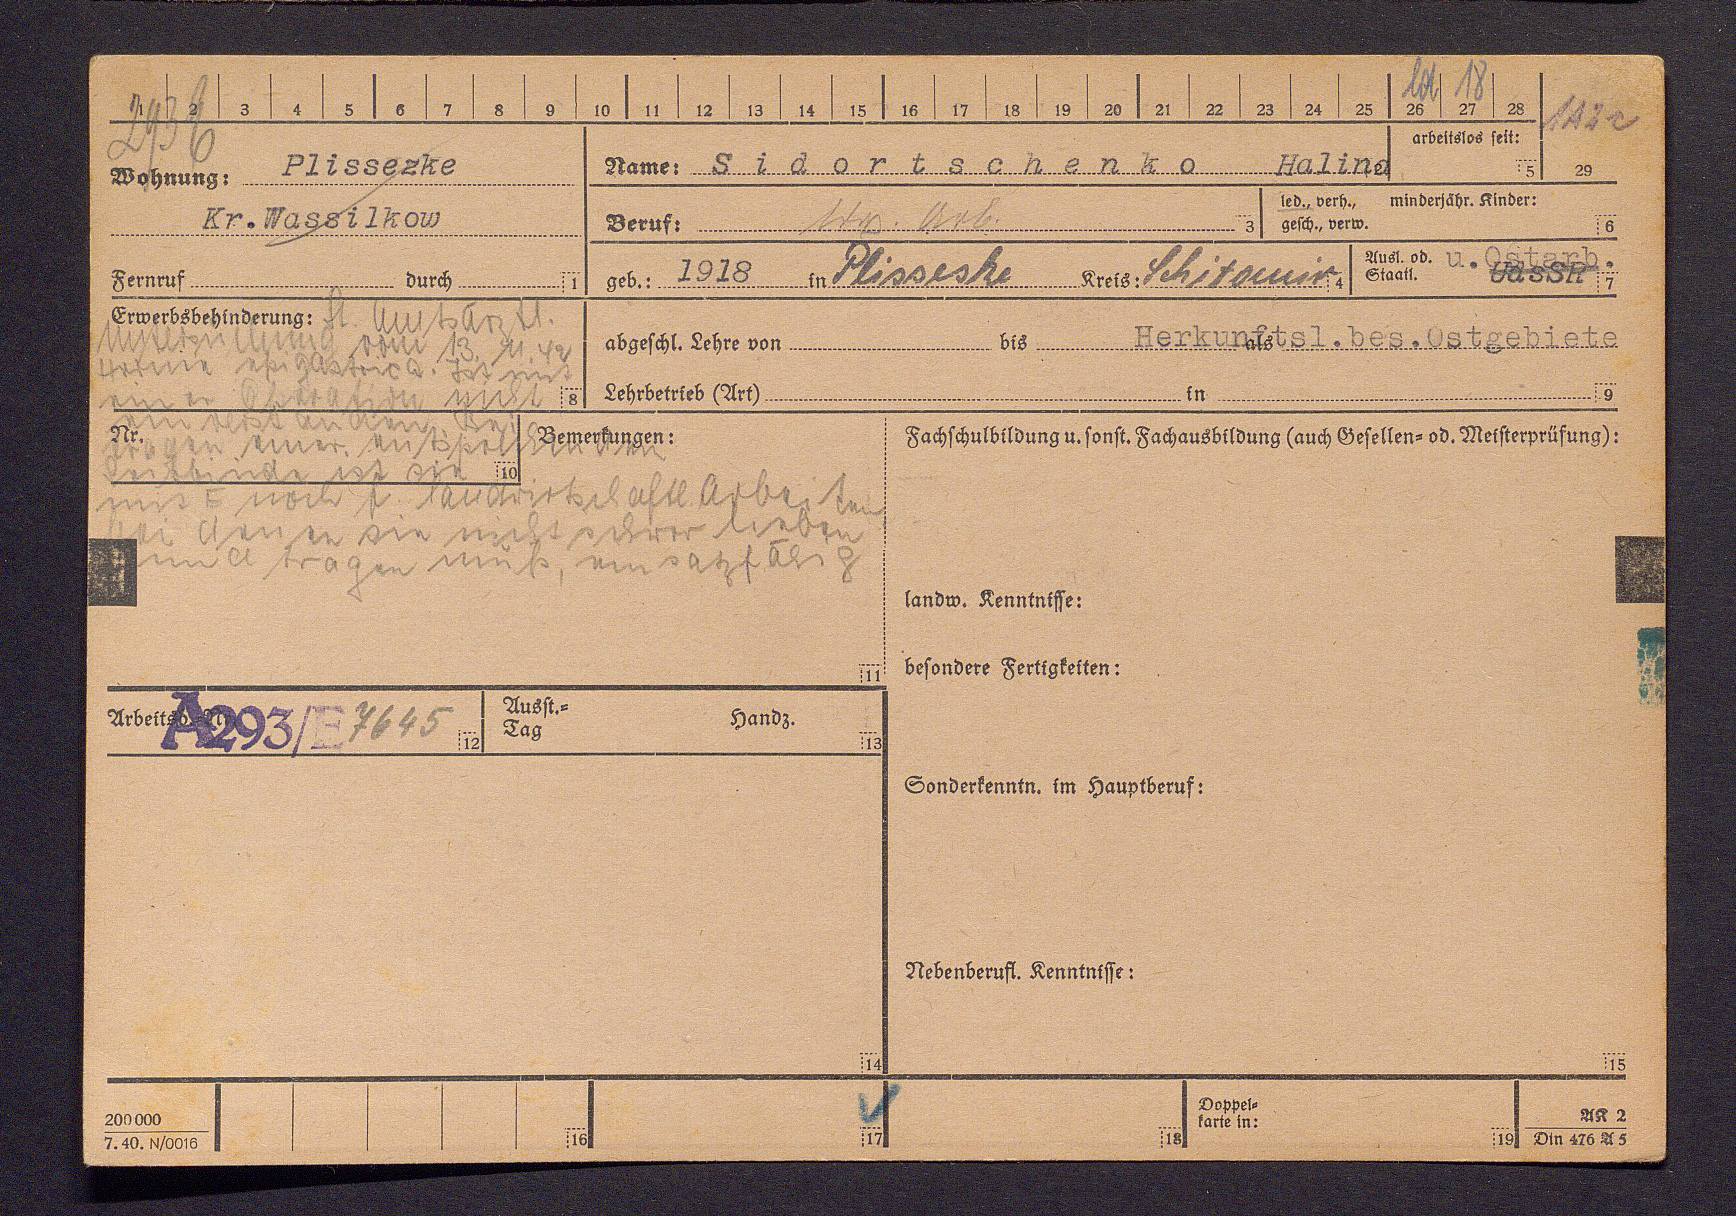 1 2 3 4 5 6 7 8 9 10 11 12 13 14 15 16 17 18 19 20 21 22 23 24 25 26 27 28
18
Wohnung: Plissezke
Kr.Wassilkow
Fernruf durch 1
Name: Sidortschenko Halina 2
arbeitslos seit: 5
29
Beruf: 3
led., verh., minderjähr. Kinder:
gesch., verw. 6
geb.: 1918 in Plisseske Kreis: Schitomir 4
Ausl. od. u. Ostarb.
Staatl. UdSSR 7
Erwerbsbehinderung: lt. Amtsärztl.
Untersuchung vom 13. 11. 42
Hernie epigastrica. Ist mit
einer Operation nicht
einverstanden. Bei
Tragen einer entsprechenden
Leibbinde ist sie
noch f. landwirtschaftl. Arbeiten
bei denen sie nicht schwer heben
und tragen muß, einsatzfähig
8
abgeschl. Lehre von bis als
Herkunftsl.bes.Ostgebiete
Lehrbetrieb (Art) in 9
Nr. 10
Bemerkungen:
11
Fachschulbildung u. sonst. Fachausbildung (auch Gesellen- od. Meisterprüfung):
landw. Kenntnisse:
besondere Fertigkeiten:
Sonderkenntn. im Hauptberuf:
Nebenberufl. Kenntnisse:
15
Arbeitsb.-Nr. A293/E 7645 12
Ausst.-
Tag
Handz. 13
14
200 000
7. 40. N/0016
16
17
18
Doppel-
karte in: 19
AK 2
Din 476 A 5